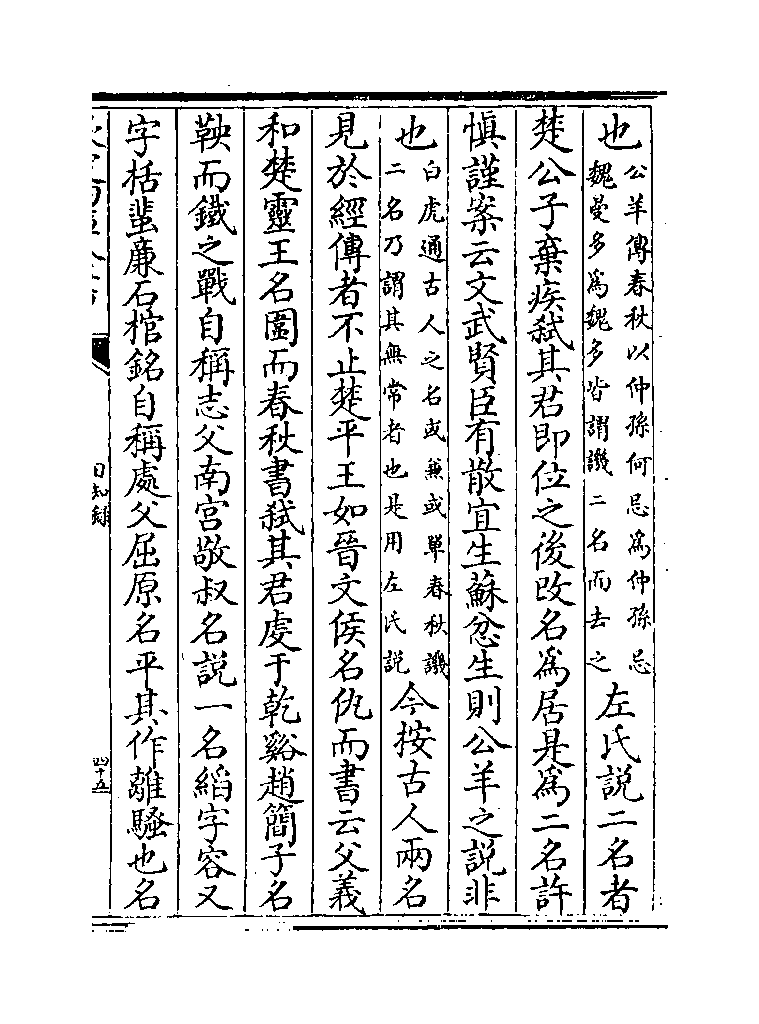 也公羊傳春秋以仲孫何忌為仲孫忌
魏曼多為魏多皆謂譏二名而去之左氏說二名者
楚公子棄疾弑其君即位之後改名為居是為二名許
慎謹案云文武賢臣有散宜生蘇忿生則公羊之說非
也白虎通古人之名或兼或單春秋譏
二名乃謂其無常者也是用左氏說今按古人兩名
見於經傳者不止楚平王如晉文侯名仇而書云父義
和楚靈王名圍而春秋書弑其君虔于乾谿趙簡子名
鞅而鐵之戰自稱志父南宮敬叔名說一名縚字容又
字括蜚廉石棺銘自稱處父屈原名平其作離騷也名
日知錄
四十五